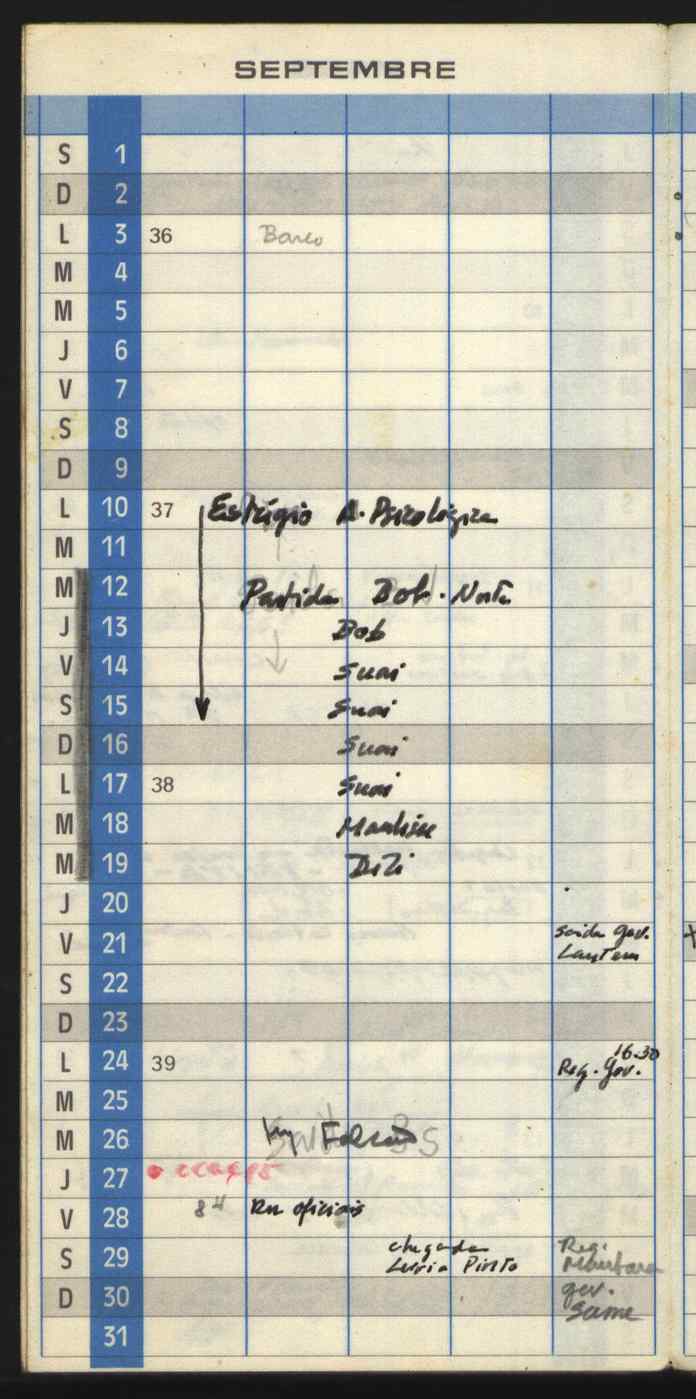 SEPTEMBRE
S 1
D 2
L 3 36 Barco
M 4
M 5
J 6
V 7
S 8
D 9
L 10 37 Estágio A. Psicológica
M 11
M 12 Partida Bob. Norte
J 13 Bob
V 14 Suai
S 15 Suai
D 16 Suai
L 17 38 Suai
M 18 Maubisse
M 19 Dili
J 20
V 21 saida gov.
Lautem
S 22
D 23
L 24 39 16.30
Reg. Gov.
M 25
M 26
J 27
V 28 8 H Reu oficiais
S 29 chegada Reg.
Luria Pinto Maubara
D 30 gov.
Same
31